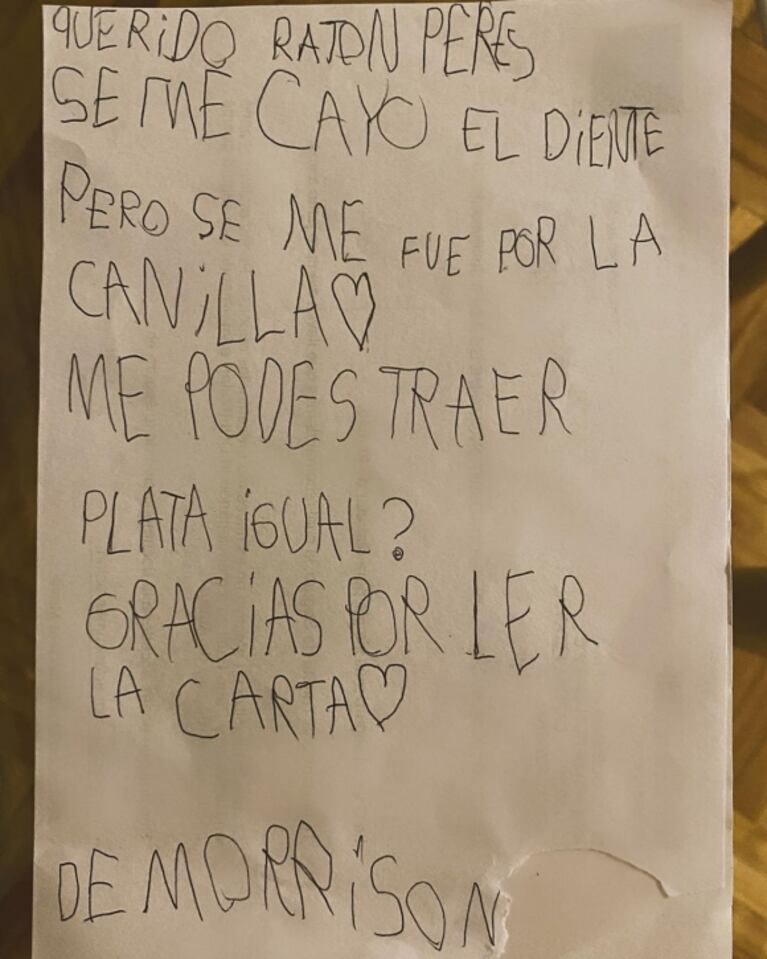 QUERiDO RATON PERES
SE ME CAYO EL DiENTE
PERO SE ME FUE POR LA
CANiLLA♡
ME PODES TRAER
PLATA iGUAL?
GRACiAS POR LER
LA CARTA♡
DE MORRiSON